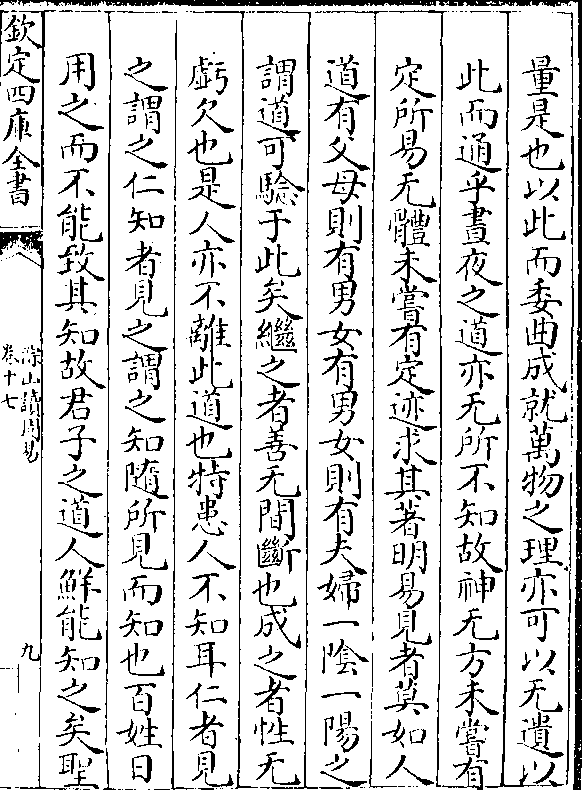 量是也以此而委曲成就萬物之理亦可以无遺以
此而通乎晝夜之道亦无所不知故神无方未嘗有
定所易无體未嘗有定迹求其著明易見者莫如人
道有父母則有男女有男女則有夫婦一陰一陽之
謂道可驗于此矣繼之者善无間斷也成之者性无
虧欠也是人亦不離此道也特患人不知耳仁者見
之謂之仁知者見之謂之知隨所見而知也百姓日
用之而不能致其知故君子之道人鮮能知之矣聖
欽定四庫全書
涂山讀周易
卷十七
九